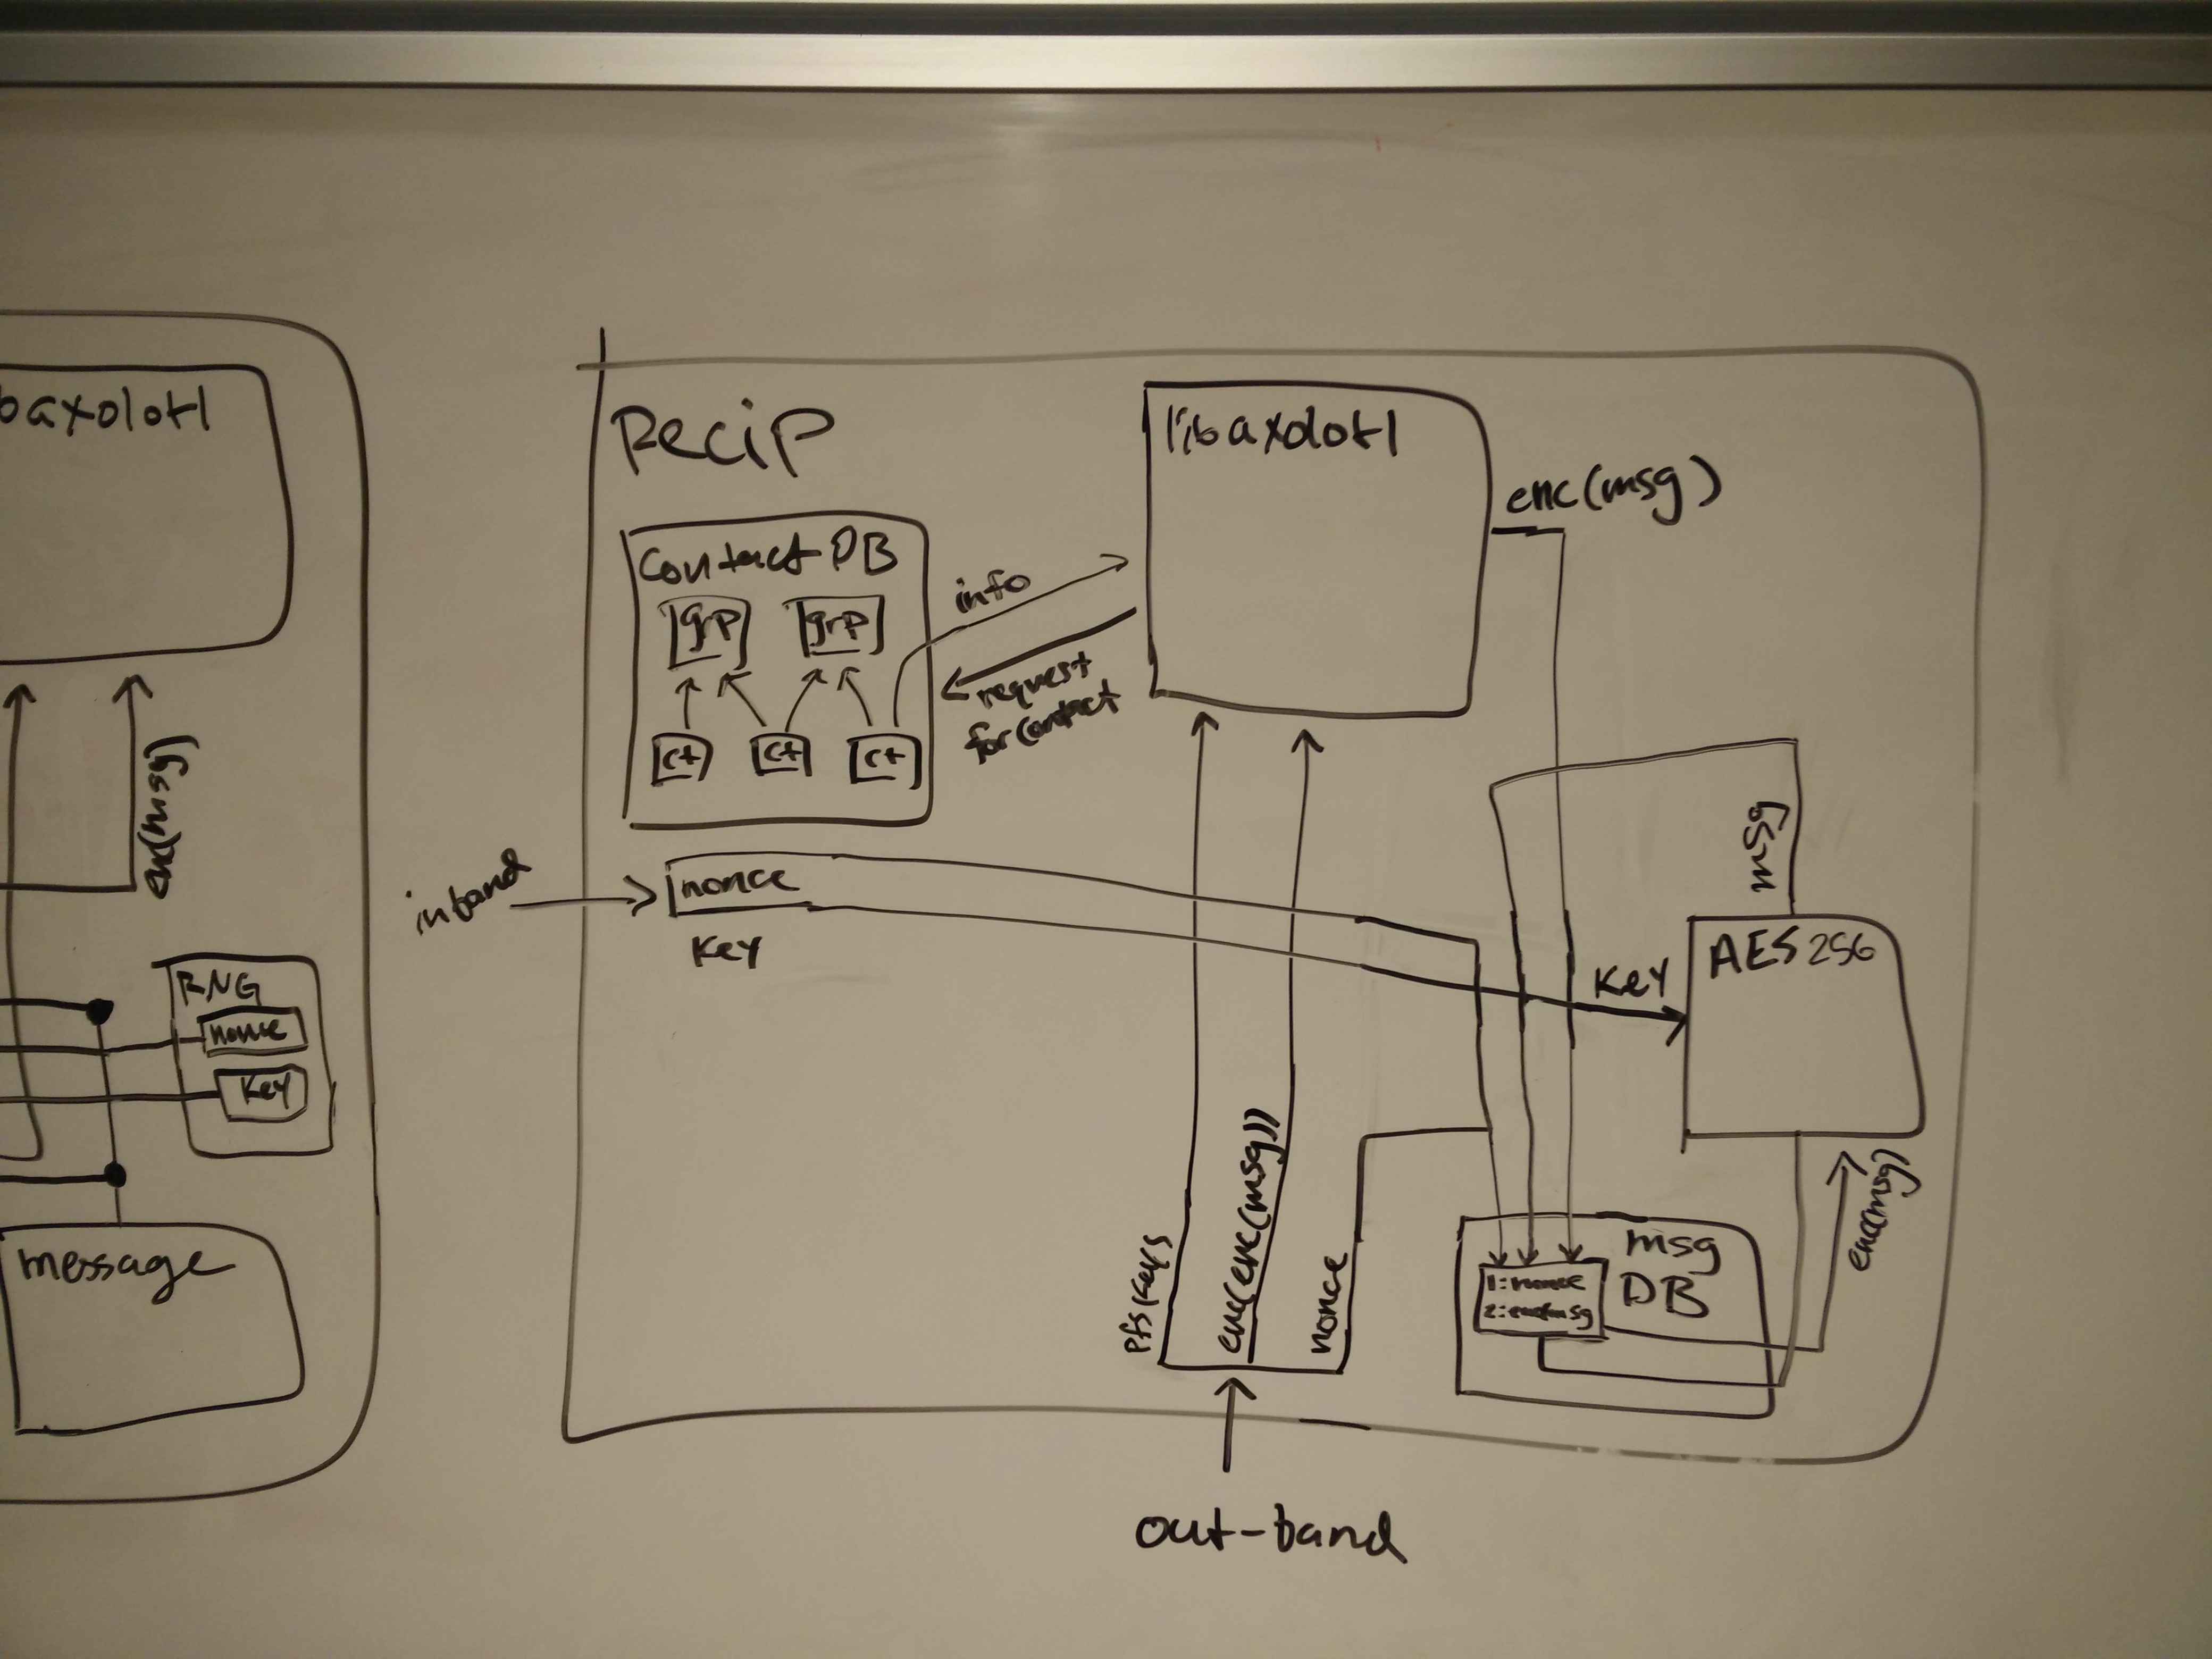 baxolotl
enc(msg)
RNG
nonce
Key
message
Recip
Contact DB
grp
grp
ct
ct
ct
info
request
for contact
libaxolotl
enc(msg)
inband
nonce
Key
msg
Key
AES 256
enc(msg)
pfs keys
enc(enc(msg))
nonce
msg
DB
1:nonce
2:encmsg
out-band